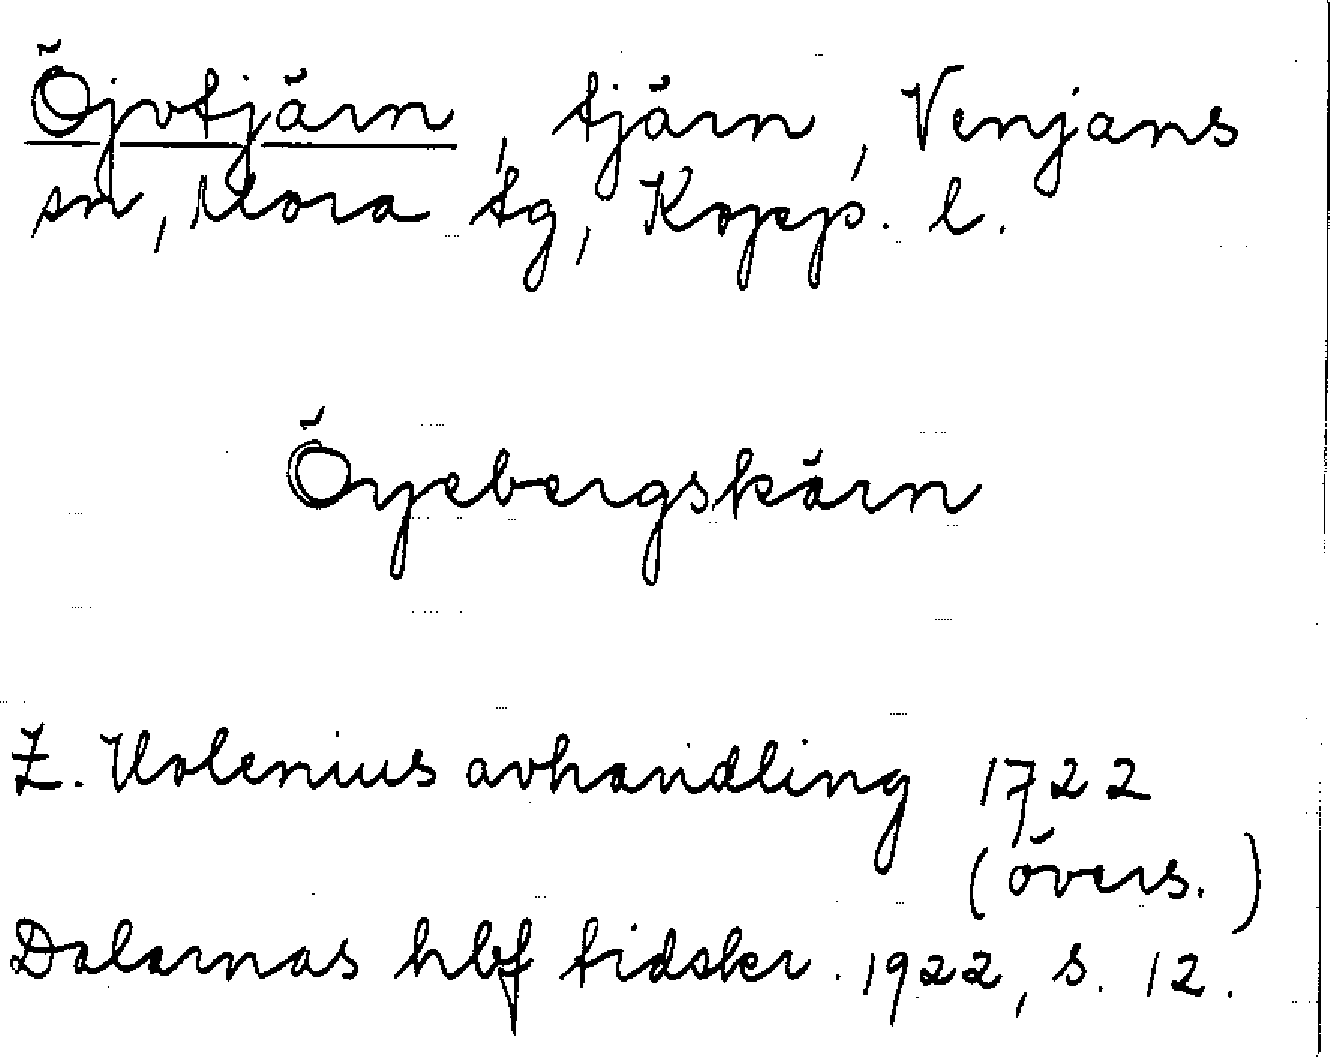 Öjvtjärn, tjärn, Venjans
sn, Mora tg, Kopp. l.
Öyebergskärn
Z. Holenius avhandling 1722
(övers.)
Dalarnas hbf tidskr. 1922, s. 12.